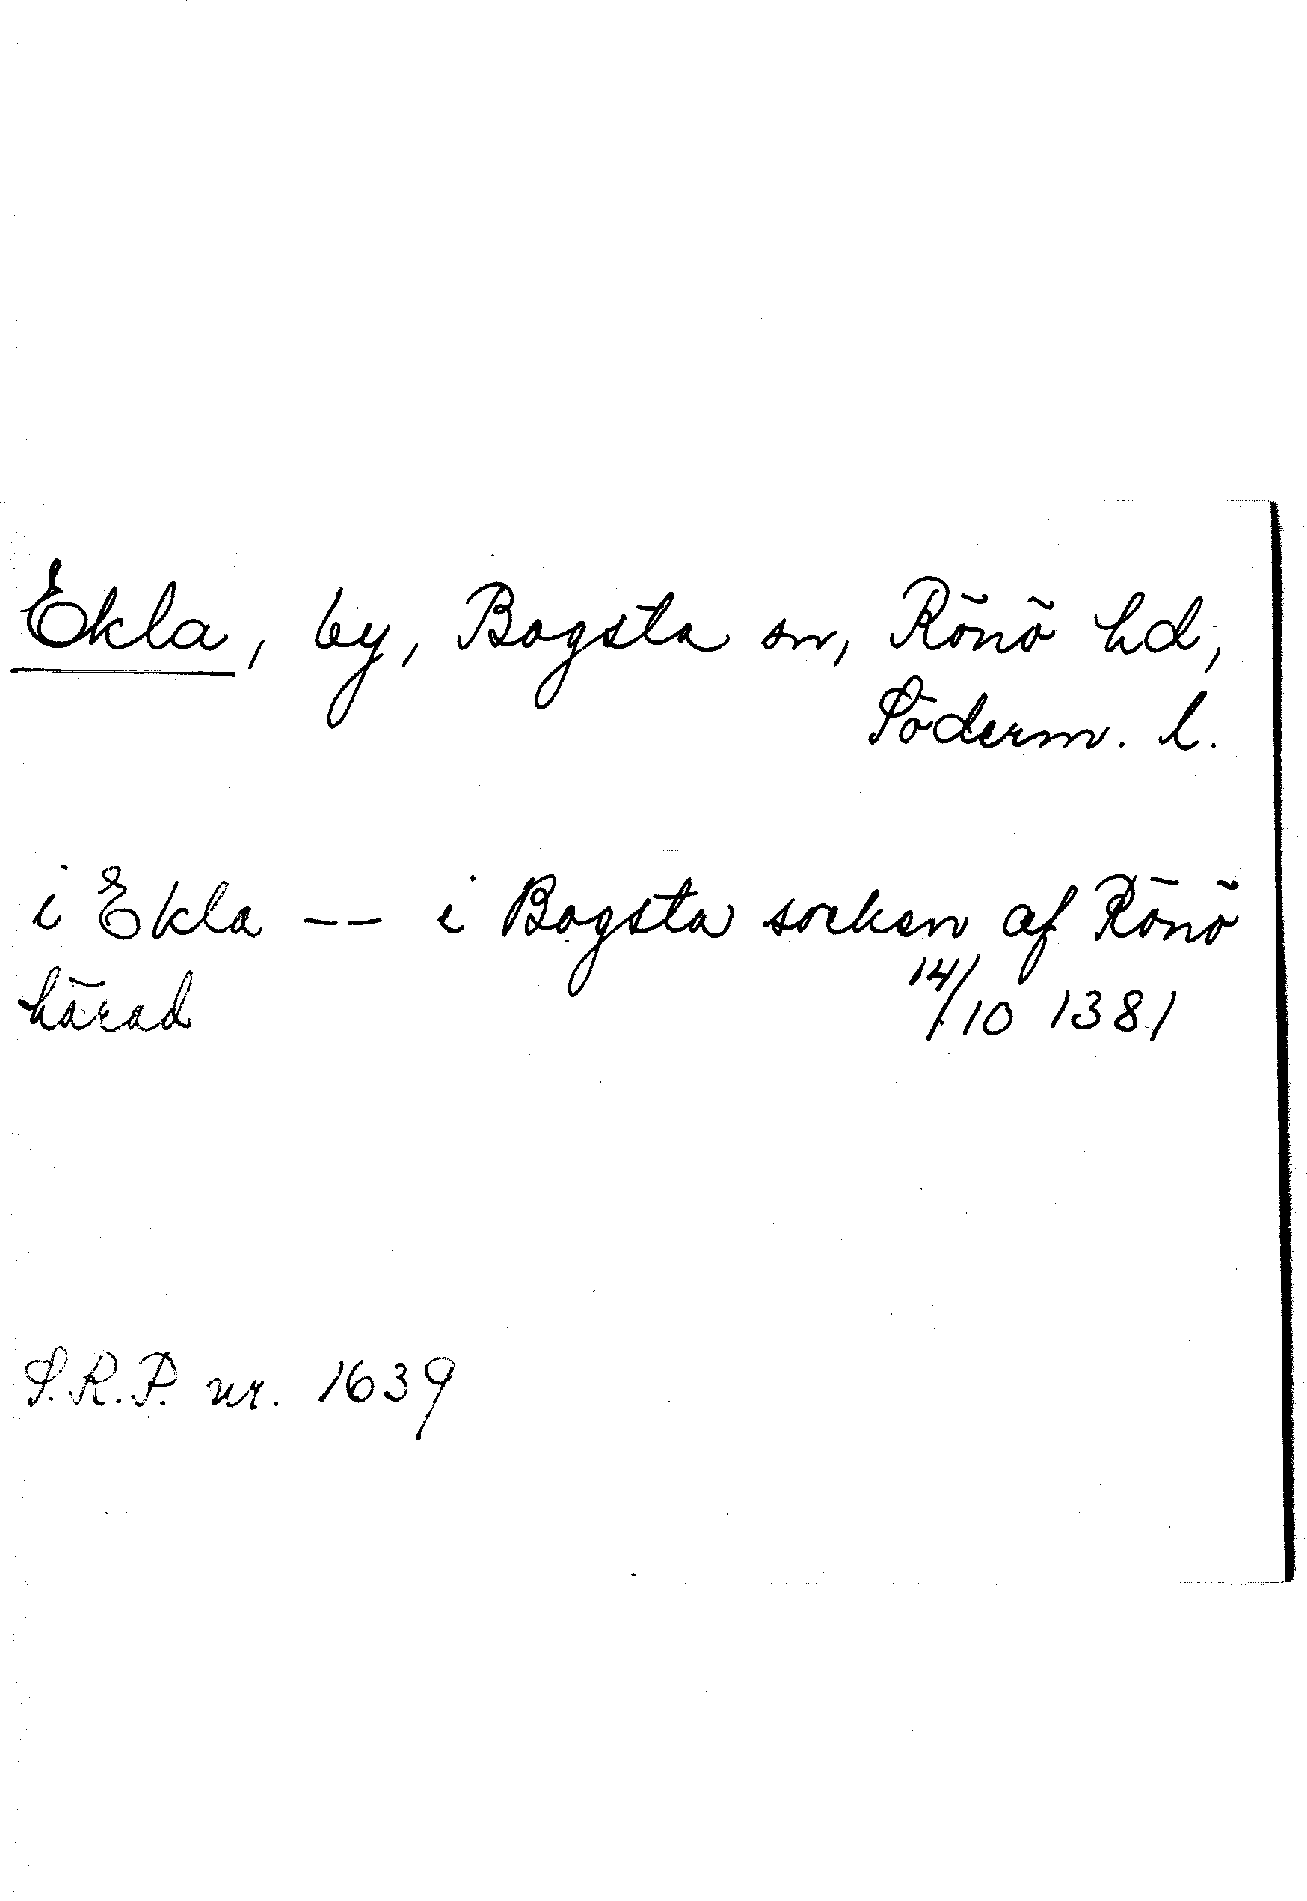 Ekla, by, Bogsta sn, Rönö hd,
Söderm. l.
i Ekla -- i Bogsta socken af Rönö
härad 14/10 1381
S.R.P. nr. 1639